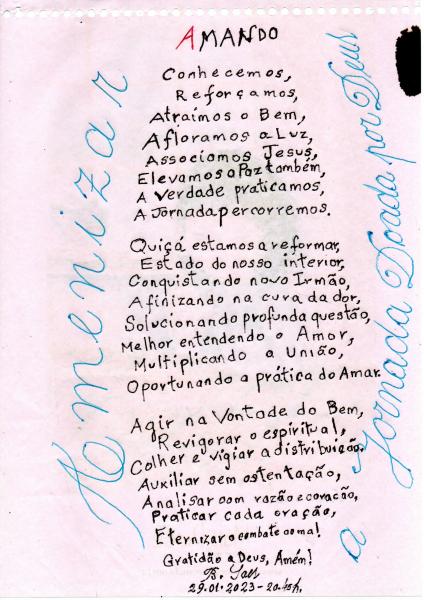 AMANDO
Conhecemos,
Reforçamos,
Atraímos o Bem,
Afloramos a Luz,
Associamos Jesus,
Elevamos a Paz também,
A Verdade praticamos,
A Jornada percorremos.
Quiçá estamos a reformar,
Estado do nosso interior,
Conquistando novo Irmão,
Afinizando na cura da dor,
Solucionando profunda questão,
Melhor entendendo o Amor,
Multiplicando a União,
Oportunando a prática do Amar.
Agir na Vontade do Bem,
Revigorar o espiritual,
Colher e vigiar a distribuição.
Auxiliar sem ostentação,
Analisar com razão e coração,
Praticar cada oração,
Eternizar o combate ao mal!
Gratidão a Deus, Amém!
29.01.2023-20:45h.
Ameniz ar
a Jornada Doada por Deus